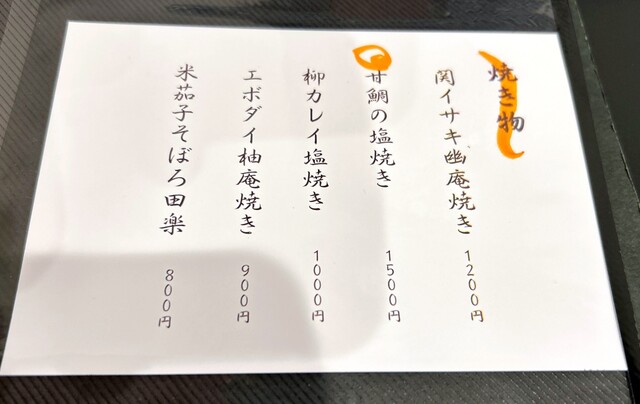 焼き物
関イサキ幽庵焼き 1200円
甘鯛の塩焼き 1500円
柳カレイ塩焼き 1000円
エボダイ柚庵焼き 900円
米茄子そぼろ田楽 800円